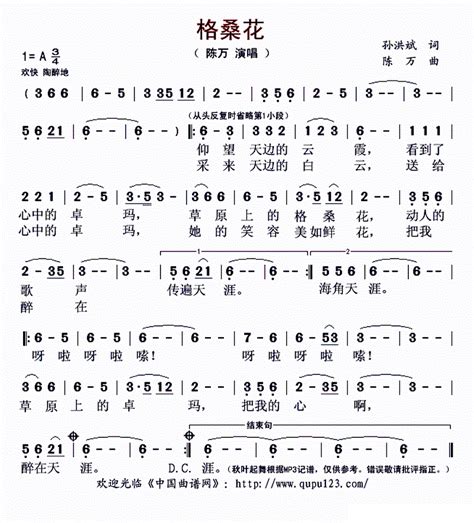 格桑花
( 陈万 演唱 )
1=A 3/4
孙洪斌 词
陈 万 曲
欢快 陶醉地
( 3 6 6 | 6 - 5 | 3·5 12 | 3 - - | 2·3 5 | 2 - - |
(从头反复时省略第1小段)
5 6 21 | 6 - - | 6 - - ) |: 6 - 3 | 3 - 3 | 1 2 3 | 6 - - | 1 2 3 |
仰 望 天边的 云 霞, 看到了
采 来 天边的 白 云, 送给
2 2 1 | 2 - 5 | 3 - - | 3 6 6 | 6 - 5 | 3·5 12 | 3 - - | 2 3 5 |
心中的 卓 玛, 草原上 的 格桑 花, 动人的
心中的 卓 玛, 她的笑 容 美如鲜 花, 把我
1. 2.
2 - 35 | 3 - - | 3 - - | 5 6 21 | 6 - - :| 5 6 21 | 6 - - | 6 - - |
歌 声 传遍天 涯。 海角天 涯。
醉 在
|: 6 - 5 | 6 - 5 | 1 2 - | 2 - - | 7 - 6 | 7 - 6 | 6 - 53 | 3 - - |
呀 啦 呀 啦 嗦! 呀 啦 呀 啦 嗦!
3 6 6 | 6 - 5 | 3·5 12 | 3 - - | 2 3 5 | 2 - 35 | 3 - - | 3 - - |
草原 上 的 卓 玛, 把我的 心 啊,
结束句
5 6 21 | 6 - - | 6 - - :| 5 6 21 | 6 - - | 6 - - | 6 - - ‖
醉在天 涯。 D.C. 涯。(秋叶起舞根据MP3记谱,仅供参考。错误敬请批评指正。)
欢迎光临《中国曲谱网》: http://www.qupu123.com/